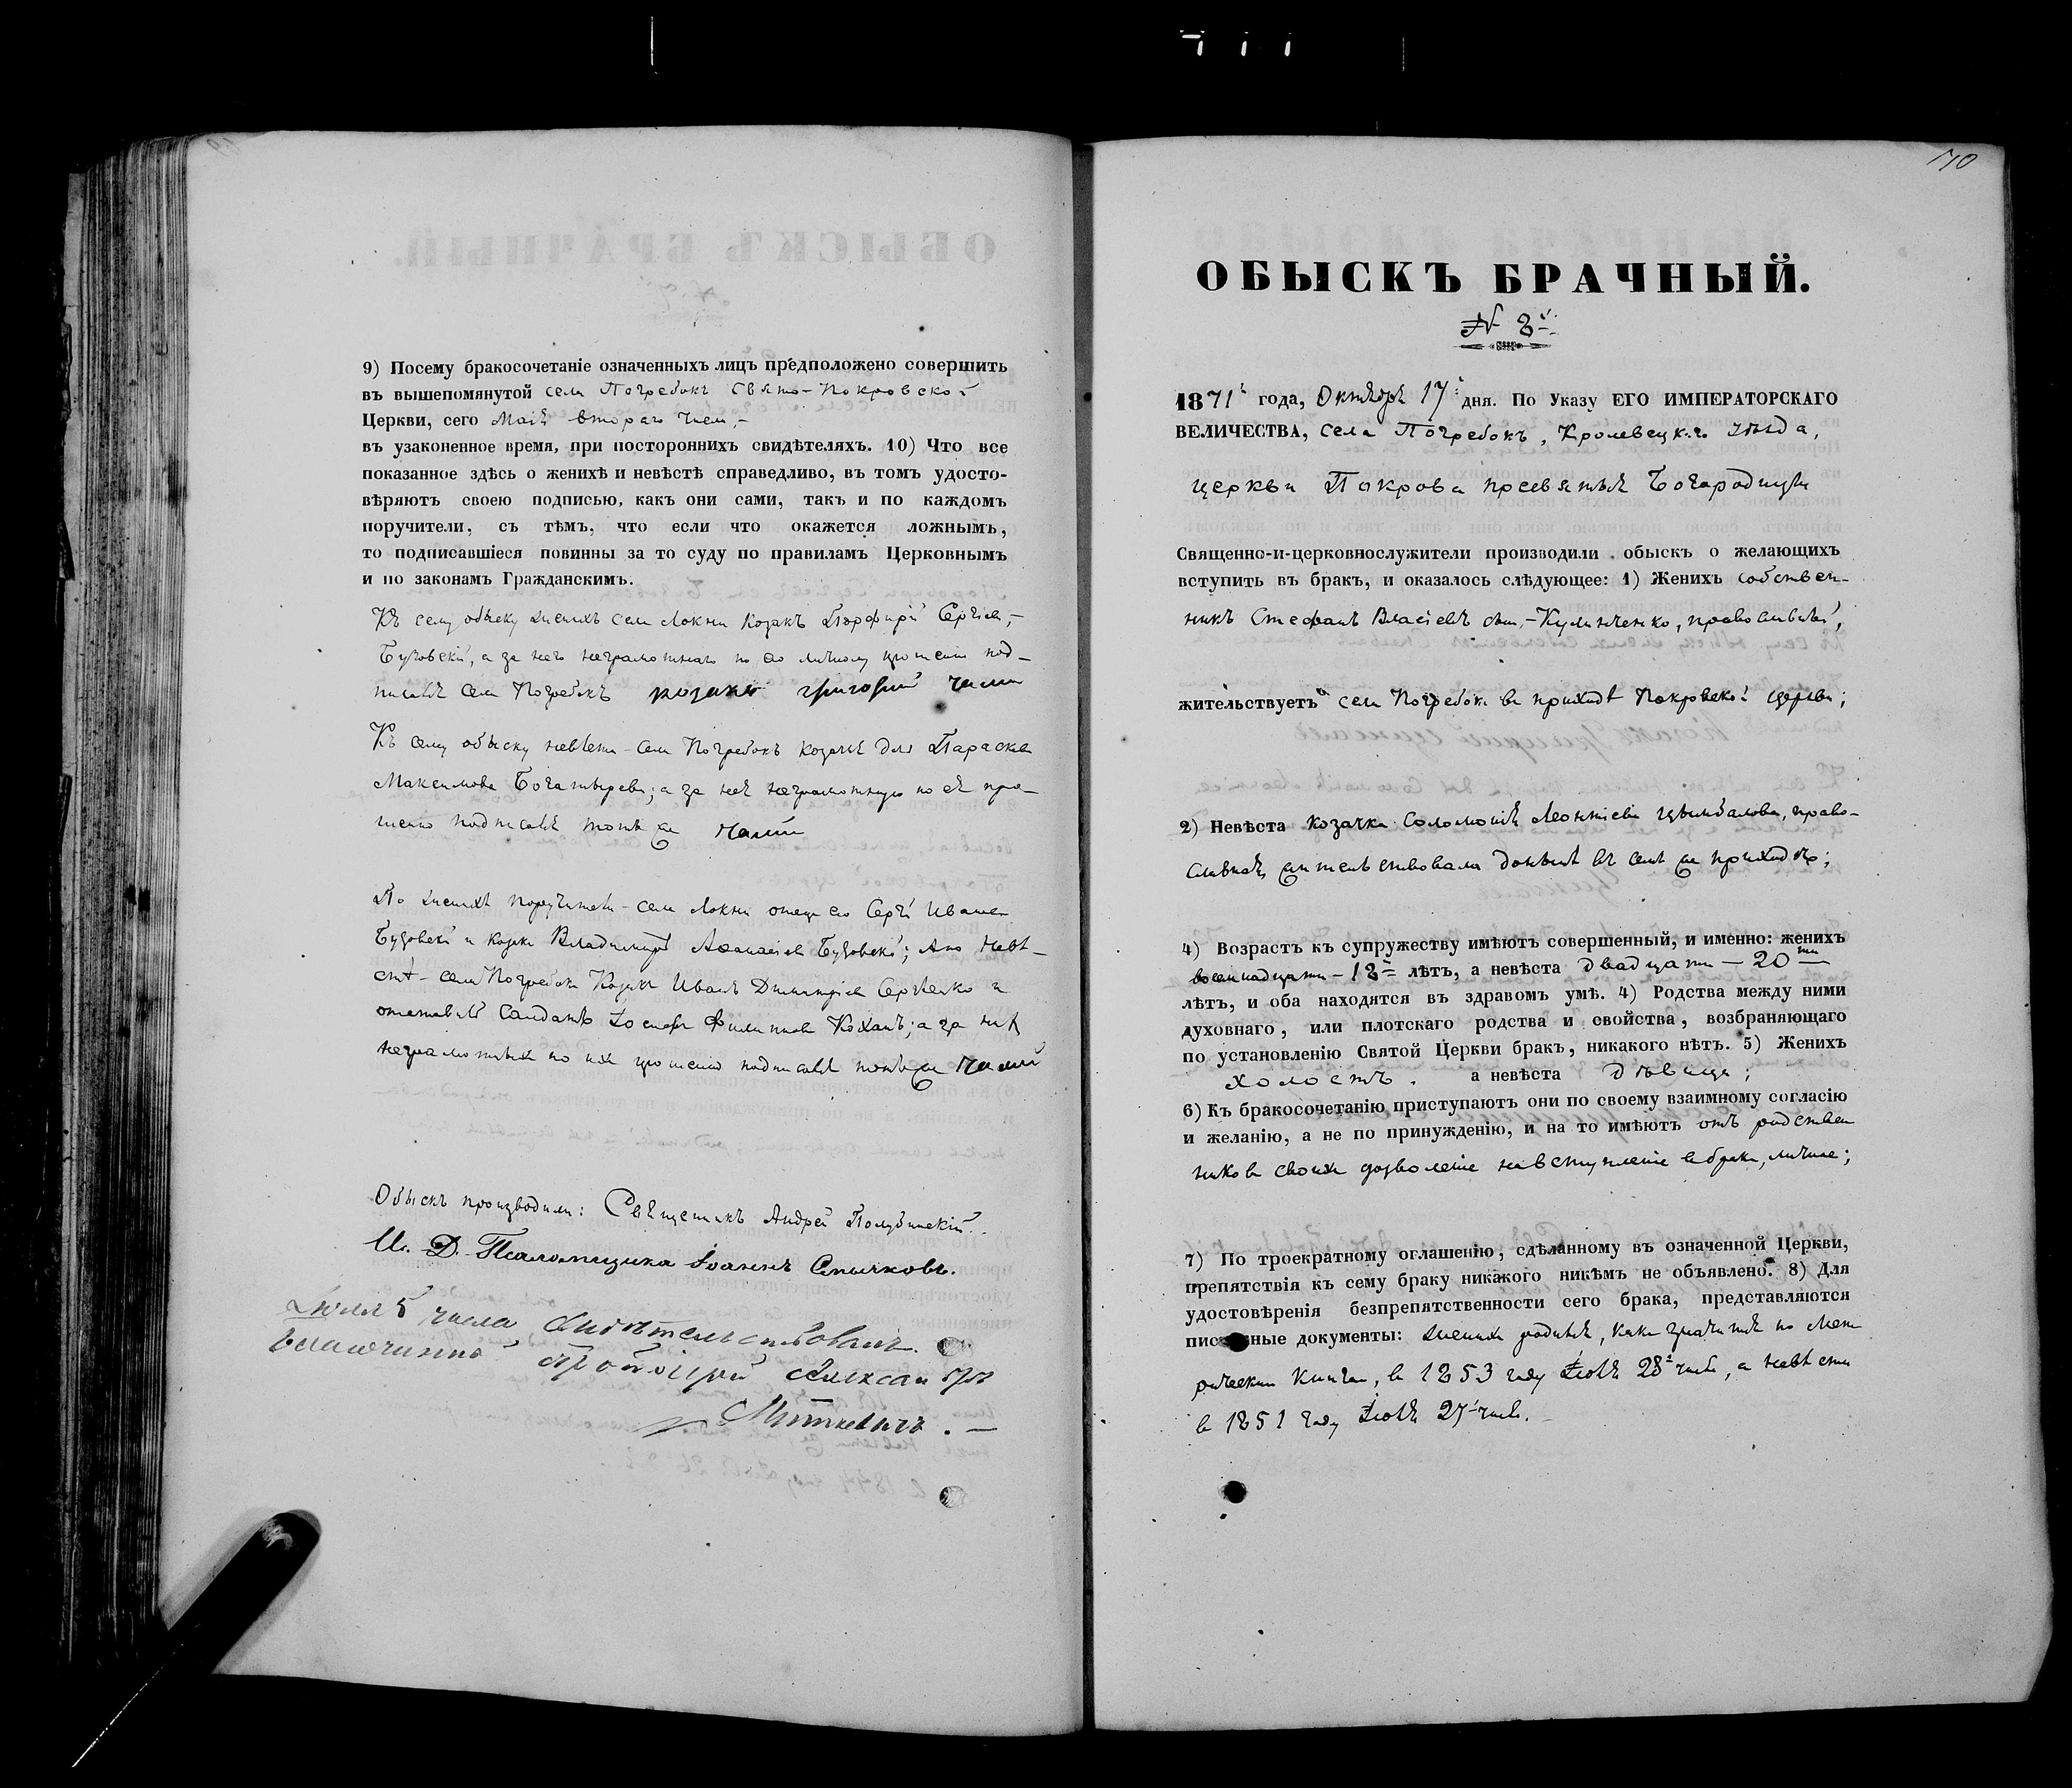 9) Посему бракосочетаніе означенныхъ лицъ предположено совершить
въ вышепомянутой села Погребокъ Свято-Покровской
Церкви, сего Маія втораго числа,-
въ узаконенное время, при постороннихъ свидѣтеляхъ. 10) Что все
показанное здѣсь о женихѣ и невѣстѣ справедливо, въ томъ удосто-
вѣряютъ своею подписью, какъ они сами, такъ и по каждомъ
поручители, съ тѣмъ, что если что окажется ложнымъ,
то подписавшіеся повинны за то суду по правиламъ Церковнымъ
и по законамъ Гражданскимъ.
Къ сему обыску женихъ села Локни козакъ Порфирій Сергіевъ,-
а за него неграмотнаго по его личному прошенію под-
писалъ села Погребокъ козакъ григорій
Къ сему обыску невѣста - села Погребокъ козачья дочь Параскева
Максимова Богатырева; а за неё неграмотную по её про-
шенію подписалъ тотъ же
По женихѣ поручители - села Локни отецъ его Сергій
и козакъ Владиміръ Аѳанасіевъ а по невѣ-
стѣ - села Погребокъ Козакъ Иванъ Димитріевъ Сергѣенко и
отставной Солдатъ Іосифъ Филиповъ Коханъ; а за нихъ
неграмотныхъ по ихъ прошенію подписалъ тотъ же
Обыскъ производили: Священникъ Андрей
И. Д. Псаломщика Іоаннъ Спычковъ.
Іюля 5 числа свидѣтельствовалъ
благочинный Протоіерей Александръ
Миткевичъ. —
70
ОБЫСКЪ БРАЧНЫЙ.
№ 8й
1871 года, Октября 17 дня. По Указу ЕГО ИМПЕРАТОРСКАГО
ВЕЛИЧЕСТВА, села Погребокъ, Кролевецкаго уѣзда,
церкви Покрова пресвятыя Богородицы
Священно-и-церковнослужители производили обыскъ о желающихъ
вступить въ бракъ, и оказалось слѣдующее: 1) Женихъ собствен-
никъ Стефанъ Власіевъ сынъ,- православный,
жительствуетъ села Погребокъ въ приходѣ Покровской церкви;
2) Невѣста козачка Соломонія Леонтіева Цымбалова, право-
славная, жительствовала донынѣ въ семъ же приходѣ;
4) Возрастъ къ супружеству имѣютъ совершенный, и именно: женихъ
восемнадцати - 18 лѣтъ, а невѣста двадцати - 20ти
лѣтъ, и оба находятся въ здравомъ умѣ. 4) Родства между ними
духовнаго, или плотскаго родства и свойства, возбраняющаго
по установленію Святой Церкви бракъ, никакого нѣтъ. 5) Женихъ
холостъ, а невѣста дѣвица;
6) Къ бракосочетанію приступаютъ они по своему взаимному согласію
и желанію, а не по принужденію, и на то имѣютъ отъ родствен
никовъ своихъ дозволеніе на вступленіе въ бракъ, личное;
7) По троекратному оглашенію, сдѣланному въ означенной Церкви,
препятствія къ сему браку никакого никѣмъ не объявлено. 8) Для
удостовѣренія безпрепятственности сего брака, представляются
писменные документы: женихъ родился, какъ значится по Мет
рическимъ Книгамъ, въ 1853 году Іюля 28 числа, а невѣста
въ 1851 году Іюля 27 числа.